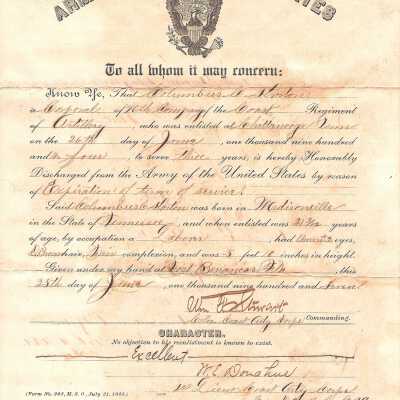 ARM TES
To all whom it may concern:
Know Ye, That Columbus
a Corporal of 20th Company of the Coast Regiment
of Artillery, who was enlisted at Chattanooga Tenn
on the 26th day of June, one thousand nine hundred
and four to serve three years, is hereby Honorably
Discharged from the Army of the United States by reason
of Expiration of term of service
Said Columbus was born in Madisonville
in the State of Tennessee, and when enlisted was 21 years
of age, by occupation a Laborer, had eyes,
hair, complexion, and was 5 feet 10 inches in height.
Given under my hand at Fort Barrancas Fla, this
25th day of June, one thousand nine hundred and seven
Wm F Stewart
Coast Arty Corps Commanding.
CHARACTER.
No objection to his reenlistment is known to exist.
Excellent
W.E. Donahue
1st Lieut Coast Arty Corps
(Form No. M. S. O., July 21,